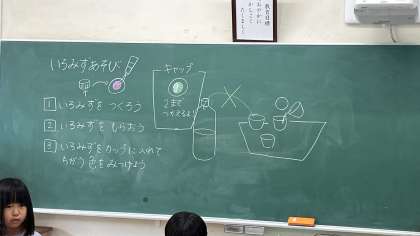 教育目標
いろみずあそび
キャップ
2まで
つかえるよ!
1 いろみずを つくろう
2 いろみずを もらおう
3 いろみずをカップに入れて
ちがう色をみつけよう